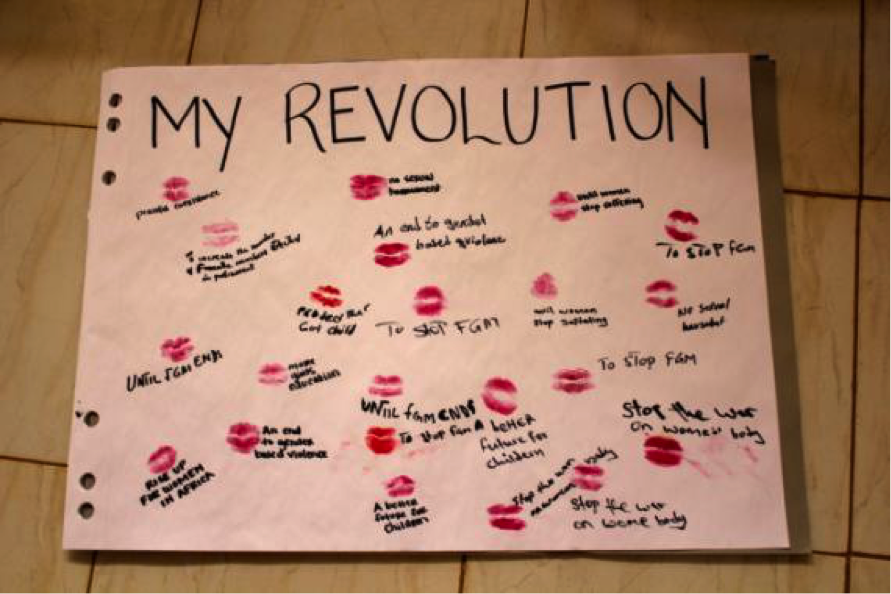 MY REVOLUTION
no sexual
harassment
until women
stop suffering
To STOP fGm
An end to gender
based violence
To increase the number
of Female members
in parliament
PROTECT that
Girl child
To StoP FGM
until women
stop suffering
No sexual
UNTIL fGM ENDS
more
girls
education
To STOP FGM
UNTIL fGM ENDS
To stop fGm
A bettER
future for
children
Stop the war
on women body
An end
to gender
based violence
RISE UP
FOR WOMEN
IN AFRICA
A better
future for
children
Stop the war
body
Stop the war
on wome body